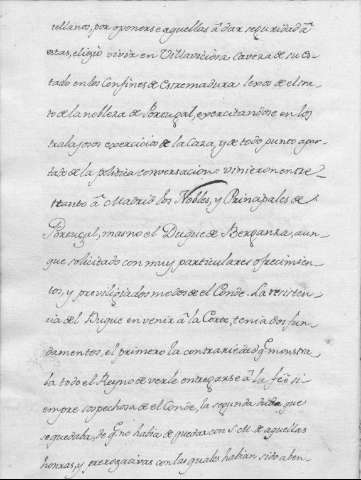 tellanos, por oponerse aquellas â dar seguridad â
estas, eligio vivir en Villaviciosa cavera de su es-
tado en los Confines de Estremadura lexos de el tra-
to de la nobleza de Portugal, exercitandose en los
trabajosos exercicios de la Caza, y de todo punto apar-
tado de la platica conversacion vinieron entre-
tanto â Madrid los Nobles, y Principales de
Portugal, mas no el Duque de Berganza, aun-
que solicitado con muy particulares ofrecimien-
tos, y previligiados medos de el Conde. La resisten-
cia del Duque en venir â la Corte, tenia dos fun-
damentos, el primero la contrariedad q̃ monstra-
la todo el Reyno de verle entregarse â la feê si-
empre sospechosa de el Conde, la segunda duda, que
se quedaba, de q̃ no habia de quedar con S. M. de aquellas
honras, y prerogativas con las quales habian sido aben-